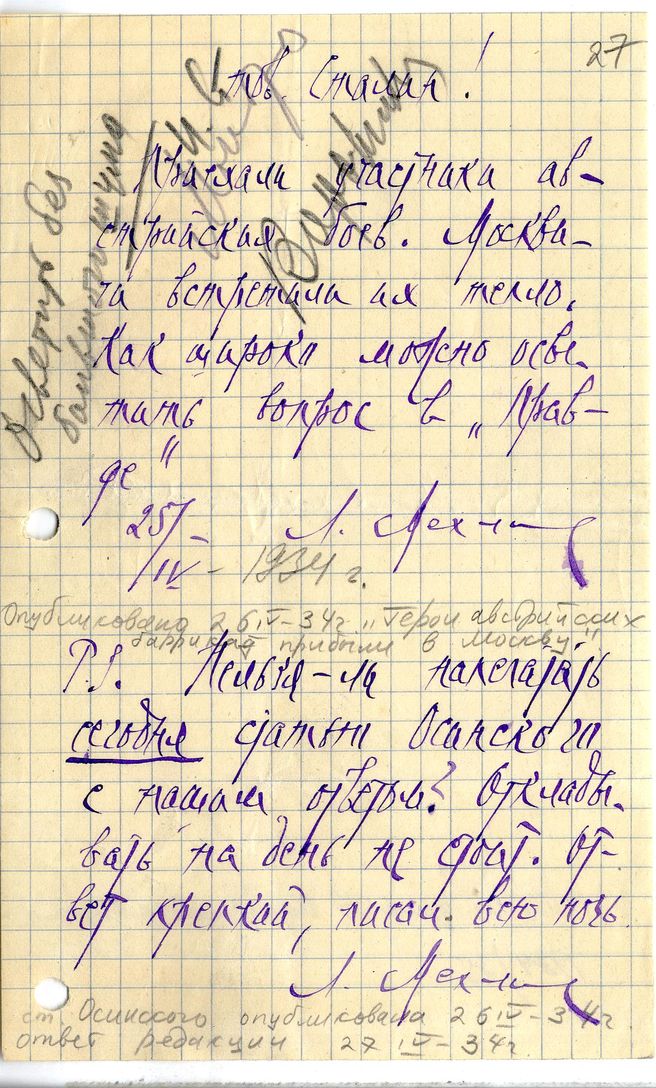 27
тов. Сталин!
Приехали участники ав-
стрийских боев. Москви-
чи встретили их тепло.
Как широко можно осве-
тить вопрос в „Прав-
де"
25/IV - 1934 г.
Л. Мехлис
Осветить без
большого шума
И. Ст
Опубликовано 26 IV-34г „Герои австрийских
баррикад прибыли в Москву"
P.S. Нельзя-ли напечатать
сегодня статью Осинского
с нашим ответом? Отклады-
вать на день не стоит. От-
вет крепкий, писал всю ночь.
Л. Мехлис
ст. Осинского опубликована 26 IV-34г.
ответ редакции 27 IV-34г.